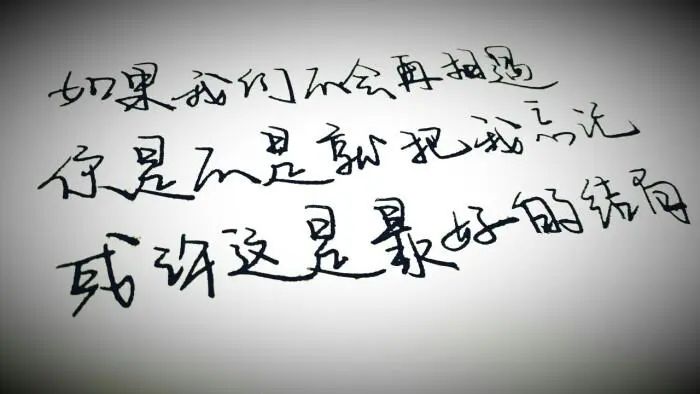 如果我们不会再相遇
你是不是就把我忘记
或许这是最好的结局